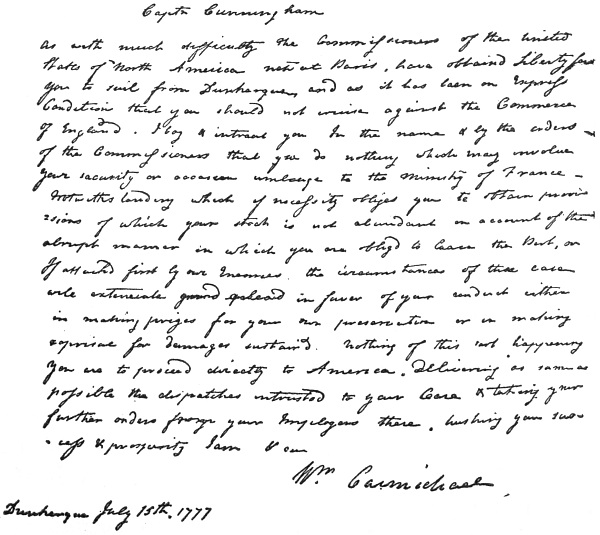 Captn Cunningham
As with much difficulty the Commissioners of the United
States of North America now at Paris, have obtaind Liberty for
you to sail from Dunkerque, and as it has been on Express
Condition that you should not cruise against the Commerce
of England. I beg & intreat you In the name & by the orders
of the Commissioners that you do nothing which may involve
your security or occasion umbrage to the Ministry of France –
Notwithstanding which if necessity obliges you to obtain provi
=sions of which your stock is not abundant on account of the
abrupt manner in which you are obligd to leave the Port, or
If attackd first by our Enemies. the circumstances of the case
will extenuate & plead in favor of your conduct either
in making prizes for your own preservation or in making
reprisal for damages sustaind. Nothing of this sort happening
you are to proceed directly to America. Delivering as soon as
possible the dispatches intrusted to your Care & taking your
further orders from your Employers there. wishing you suc-
-cess & prosperity I am &
Wm Carmichael.
Dunkerque July 15th. 1777